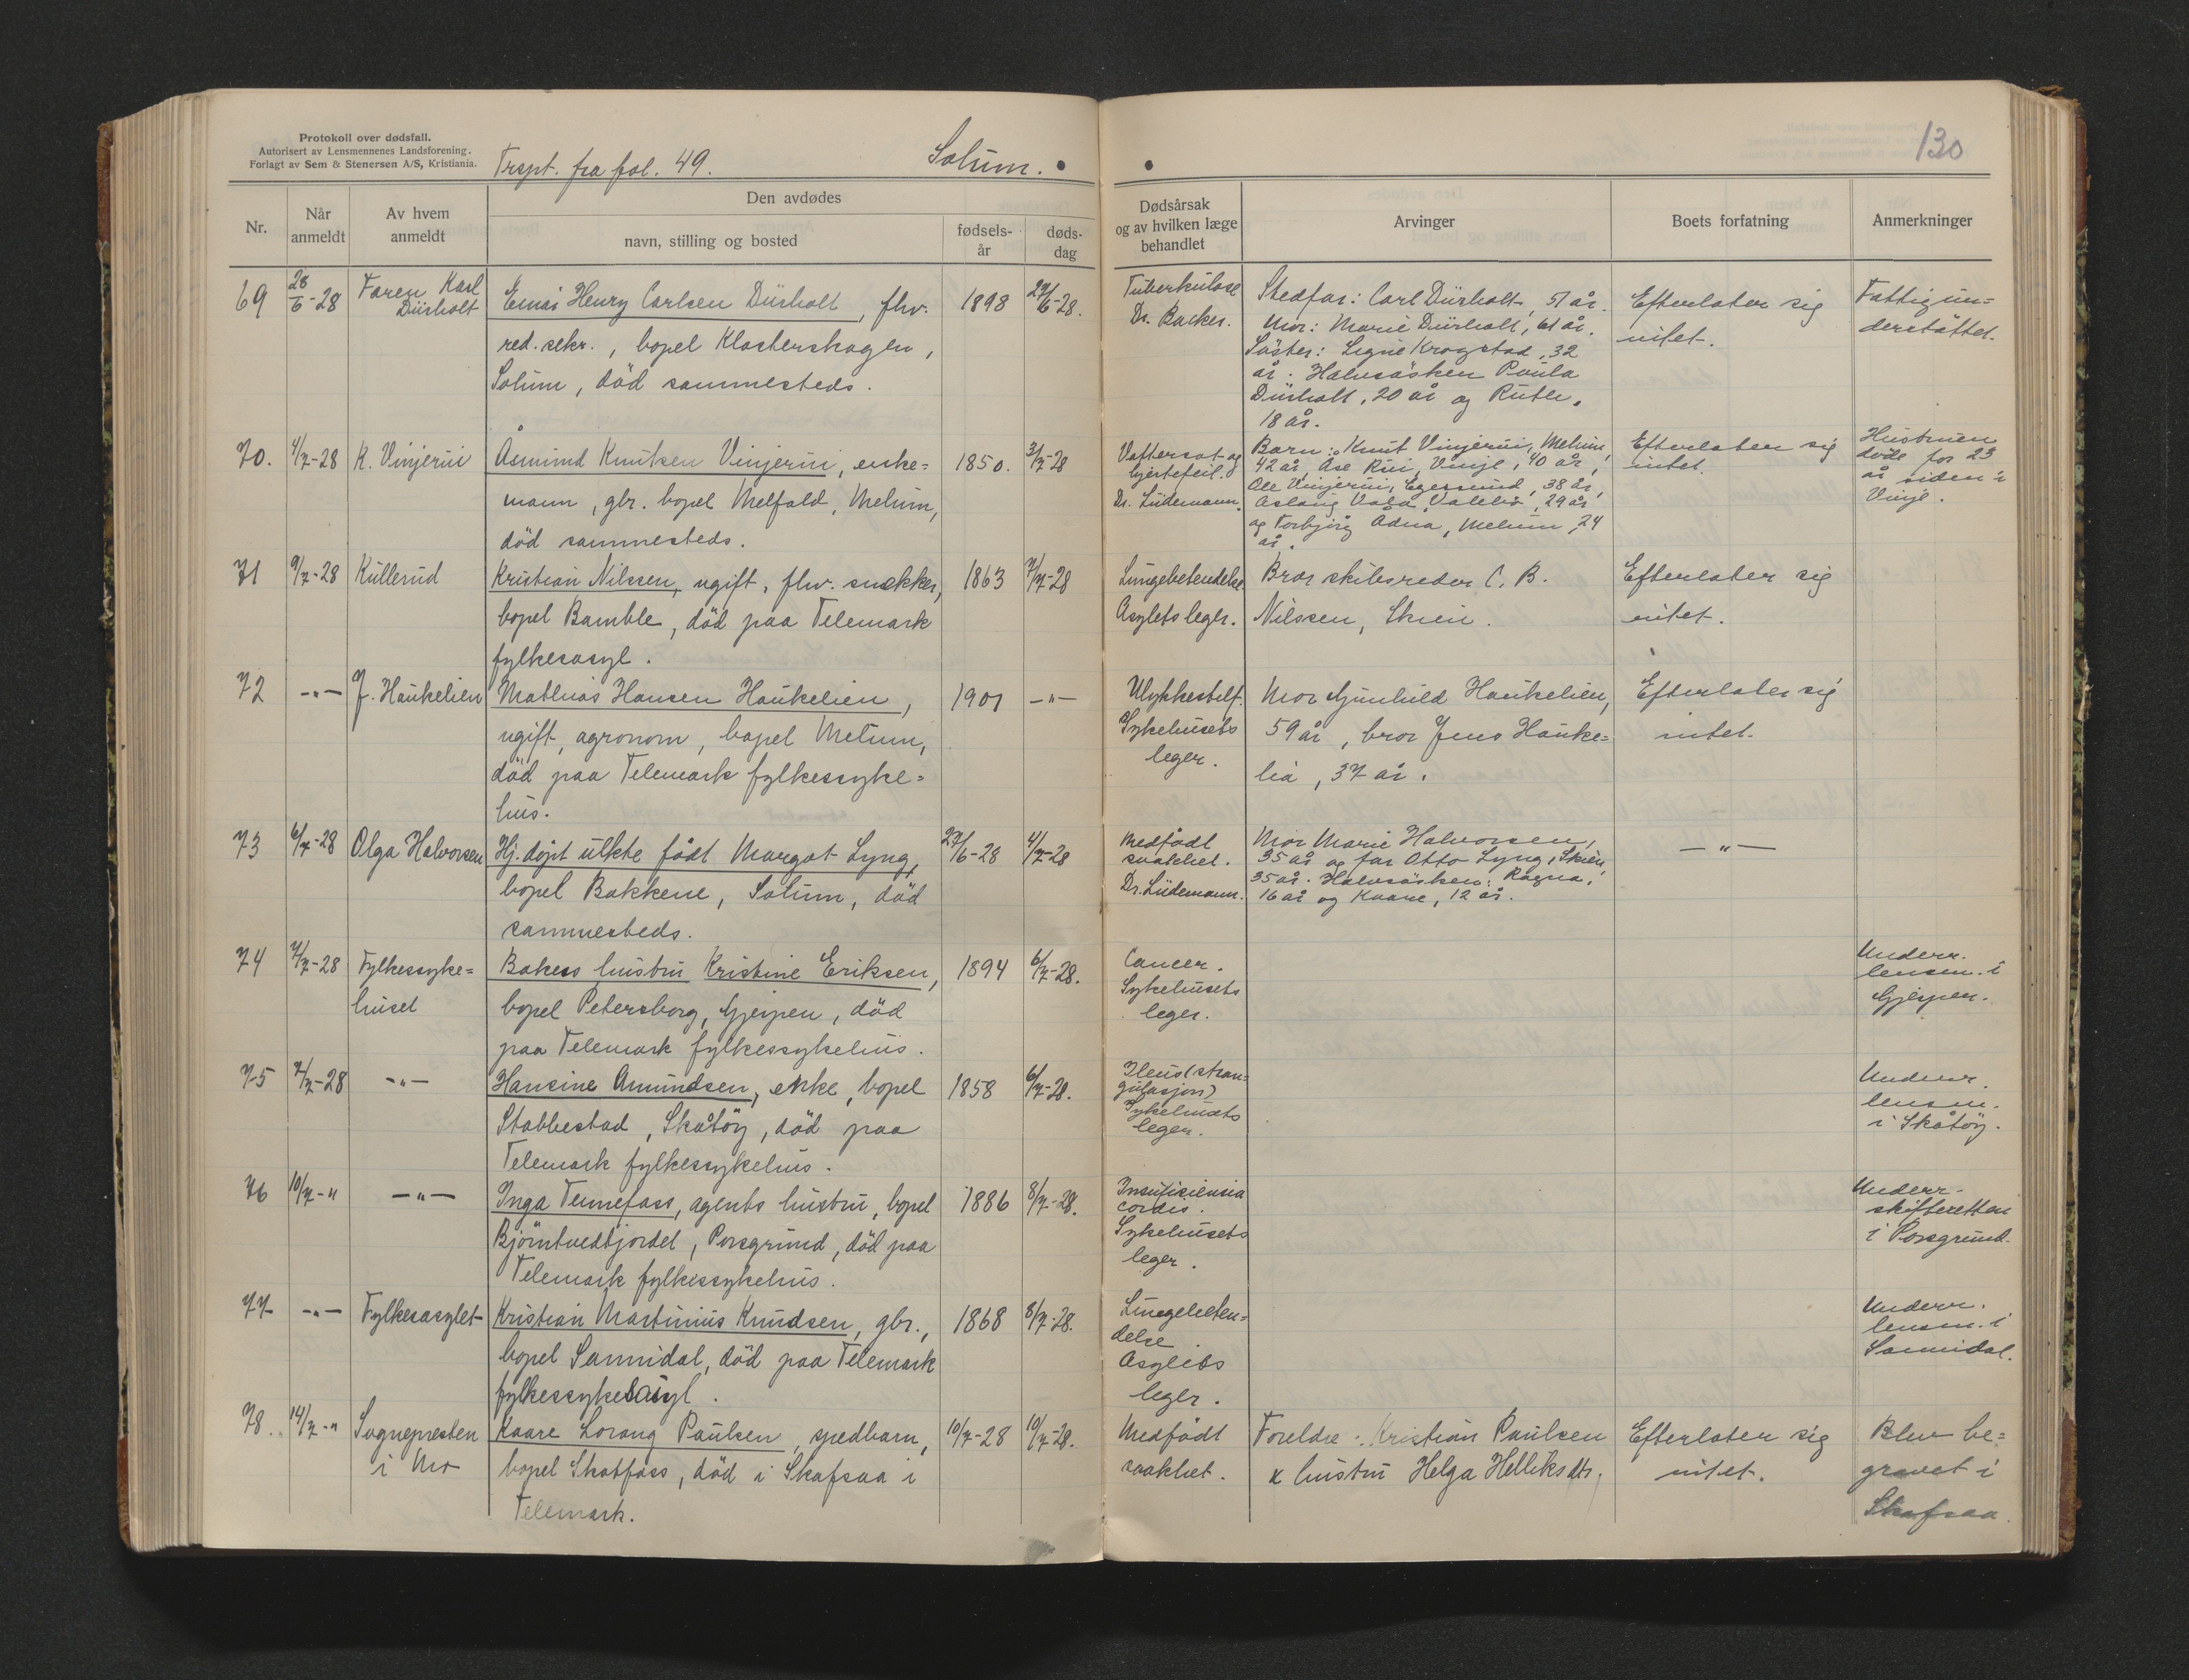 Protokoll over dødsfall.
Autorisert av Lensmennenes Landsforening.
Forlagt av Sem & Stenersen A/S, Kristiania.
Trspt. fra fol. 49.
Solum.
130
Nr.
Når anmeldt
Av hvem anmeldt
Den avdødes
navn, stilling og bosted
fødsels-år
døds-dag
Dødsårsak og av hvilken læge behandlet
Arvinger
Boets forfatning
Anmerkninger
69 28/6-28 Faren Karl Dürholt
Einar Henry Carlsen Dürholt, fhv.
red.sekr., bopel Klosterskogen,
Solum, död sammesteds.
1898 27/6-28.
Tuberkulose
Dr. Backer.
Stedfar: Carl Dürholt, 51 år.
Mor: Marie Dürholt, 61 år.
Söster: Signe Krogstad, 32
år. Halvsösken Paula
Dürholt, 20 år og Ruth,
18 år.
Efterlater sig
intet.
Fattigun=
derstöttet.
70. 4/7-28 K. Vinjerui
Åsmund Knutsen Vinjerui, enke=
mann, gbr. bopel Melfald, Melum,
död sammesteds.
1850. 3/7-28
Vattersot og
hjertefeil.
Dr. Lüdemann.
Barn: Knut Vinjerui, Melum,
42 år, Åse Rui, Vinje, 40 år,
Ole Vinjerui, Egersund, 38 år,
Aslaug Vala, Valebö, 29 år
og Torbjörg Ådna, Melum, 24
år.
Efterlater sig
intet.
Hustruen
döde for 23
år siden i
Vinje.
71 9/7-28 Kullerud
Kristian Nilssen, ugift, fhv. snekker,
bopel Bamble, död paa Telemark
fylkesasyl.
1863 7/7-28
Lungebetendelse
Asylets leger.
Bror skibsreder C. B.
Nilssen, Skien.
Efterlater sig
intet.
72 -„- J. Haukelien
Mathias Hansen Haukelien,
ugift, agronom, bopel Melum,
död paa Telemark fylkessyke=
hus.
1901 -„-
Ulykkestilf.
Sykehusets
leger.
Mor Gunhild Haukelien,
59 år, bror Jens Hauke=
lia, 37 år.
Efterlater sig
intet.
73 6/7-28 Olga Halvorsen
Hj. döpt ulkte födt Margot Lyng,
bopel Bakkene, Solum, död
sammesteds.
29/6-28 4/7-28
Medfödt
svakhet.
Dr. Lüdemann.
Mor Marie Halvorsen,
35 år og far Otto Lyng, Skien,
35 år. Halvsösken: Ragna,
16 år og Kaare, 12 år.
-„-
74 7/7-28 Fylkessyke=
huset
Bakers hustru Kristine Eriksen,
bopel Petersborg, Gjerpen, död
paa Telemark fylkessykehus.
1894 6/7-28.
Cancer.
Sykehusets
leger.
Underr.
lensm. i
Gjerpen.
75 7/7-28 -„-
Hansine Amundsen, enke, bopel
Stabbestad, Skåtöy, död paa
Telemark fylkessykehus.
1858 6/7-28.
Ileus (stran=
gulasjon)
Sykehusets
leger.
Underr.
lensm.
i Skåtöy.
76 10/7-„ -„-
Inga Tennefoss, agents hustru, bopel
Björntvedtjordet, Porsgrund, död paa
Telemark fylkessykehus.
1886 8/7-28.
Insufisiensia
cordis.
Sykehusets
leger.
Underr.
skifteretten
i Porsgrund.
77 -„- Fylkesasylet
Kristian Martinius Knudsen, gbr.,
bopel Sannidal, död paa Telemark
fylkessykesasyl.
1868 8/7-28.
Lungebeten=
delse
Asylets
leger.
Underr.
lensm. i
Sannidal.
78. 14/7-„ Sognepresten
i Mo
Kaare Lorang Paulsen, spedbarn,
bopel Skotfoss, död i Skafsaa i
Telemark.
10/7-28 10/7-28.
Medfödt
svakhet.
Foreldre: Kristian Paulsen
x hustru Helga Helliksdtr.
Efterlater sig
intet.
Blev be=
gravet i
Skafsaa.